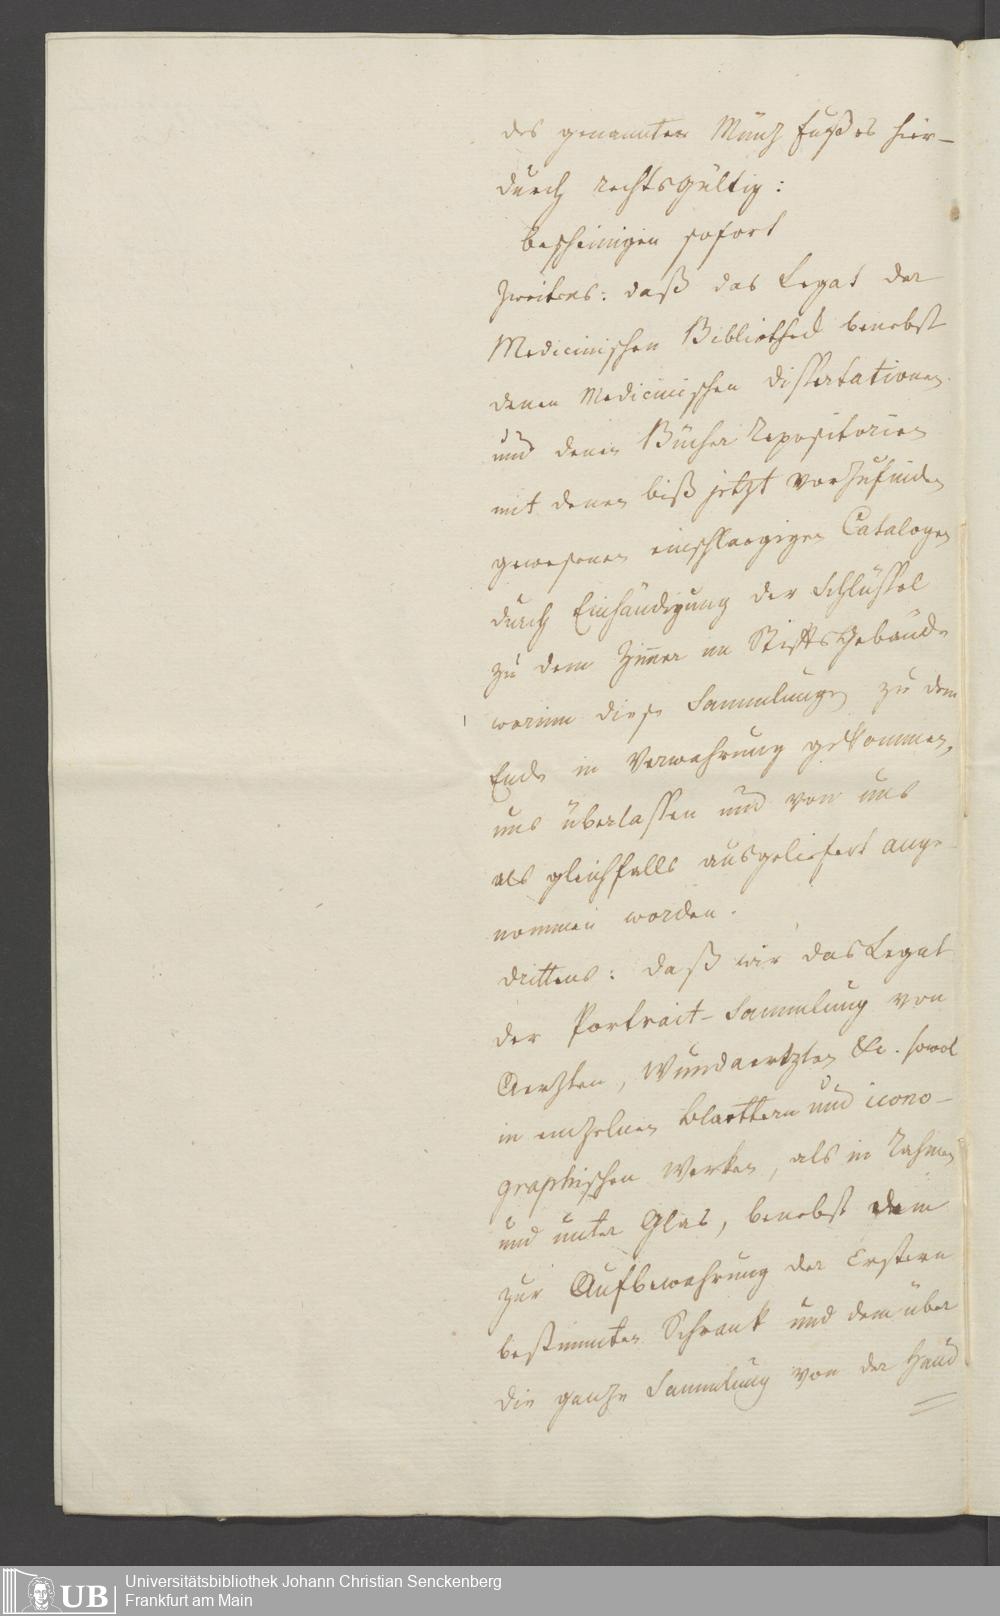 des genannten Münz Fußes hier-
durch rechtsgültig:
bescheinigen sofort
Zweitens: daß das Legat der
Medicinischen Bibliotheck benebst
denen Medicinischen Dissertationen
und denen Bücher Repositorien
mit denen biß jetzt vorzufinden
gewesenen einschlaegigen Catalogen
durch Einhändigung der Schlüssel
zu dem Zimer im Stifts Gebäude
worinn diese Sammlungen zu dem
Ende in Verwahrung gekommen,
uns überlassen und von uns
als gleichfalls ausgeliefert ange-
nommen worden.
drittens: daß wir das Legat
der Portrait-Sammlung von
Aerzten, Wundaertzten &c. sowol
in einzelnen Blaettern und icono-
graphischen Werken, als in Rahmen
und unter Glas, benebst dem
zur Aufbewahrung der Erstern
bestimmten Schrank und dem über
die ganze Sammlung von der Hand
UB
Universitätsbibliothek Johann Christian Senckenberg
Frankfurt am Main